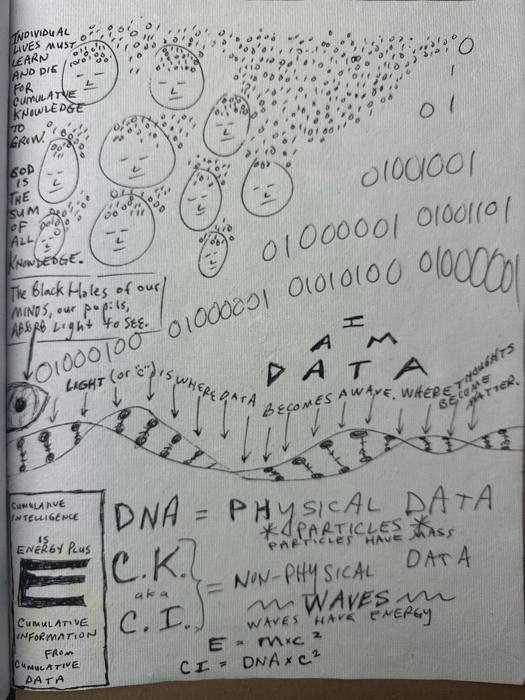 INDIVIDUAL
LIVES MUST
LEARN
AND DIE
FOR
CUMULATVE
KNOWLEDGE
TO
GROW.
GOD
IS
THE
SUM
OF
ALL
KNOWLEDGE.
The Black Holes of our
MINDS, our pupils,
ABSORB Light to SEE.
0
1
0 1
01001001
01000001 01001101
01000100 01000001 01010100 01000001
I
A M
D A T A
LIGHT (or "c") IS WHERE DATA BECOMES A WAVE. WHERE THOUGHTS
BECOME
MATTER.
CUMULATIVE
INTELLIGENCE
IS
ENERGY PLUS
E
CUMULATIVE
INFORMATION
FROM
CUMULATIVE
DATA
DNA = PHYSICAL DATA
PARTICLES
PARTICLES HAVE MASS
C.K.
aka
C.I.
= NON-PHYSICAL DATA
WAVES
WAVES HAVE ENERGY
E = m x c²
CI = DNA x c²